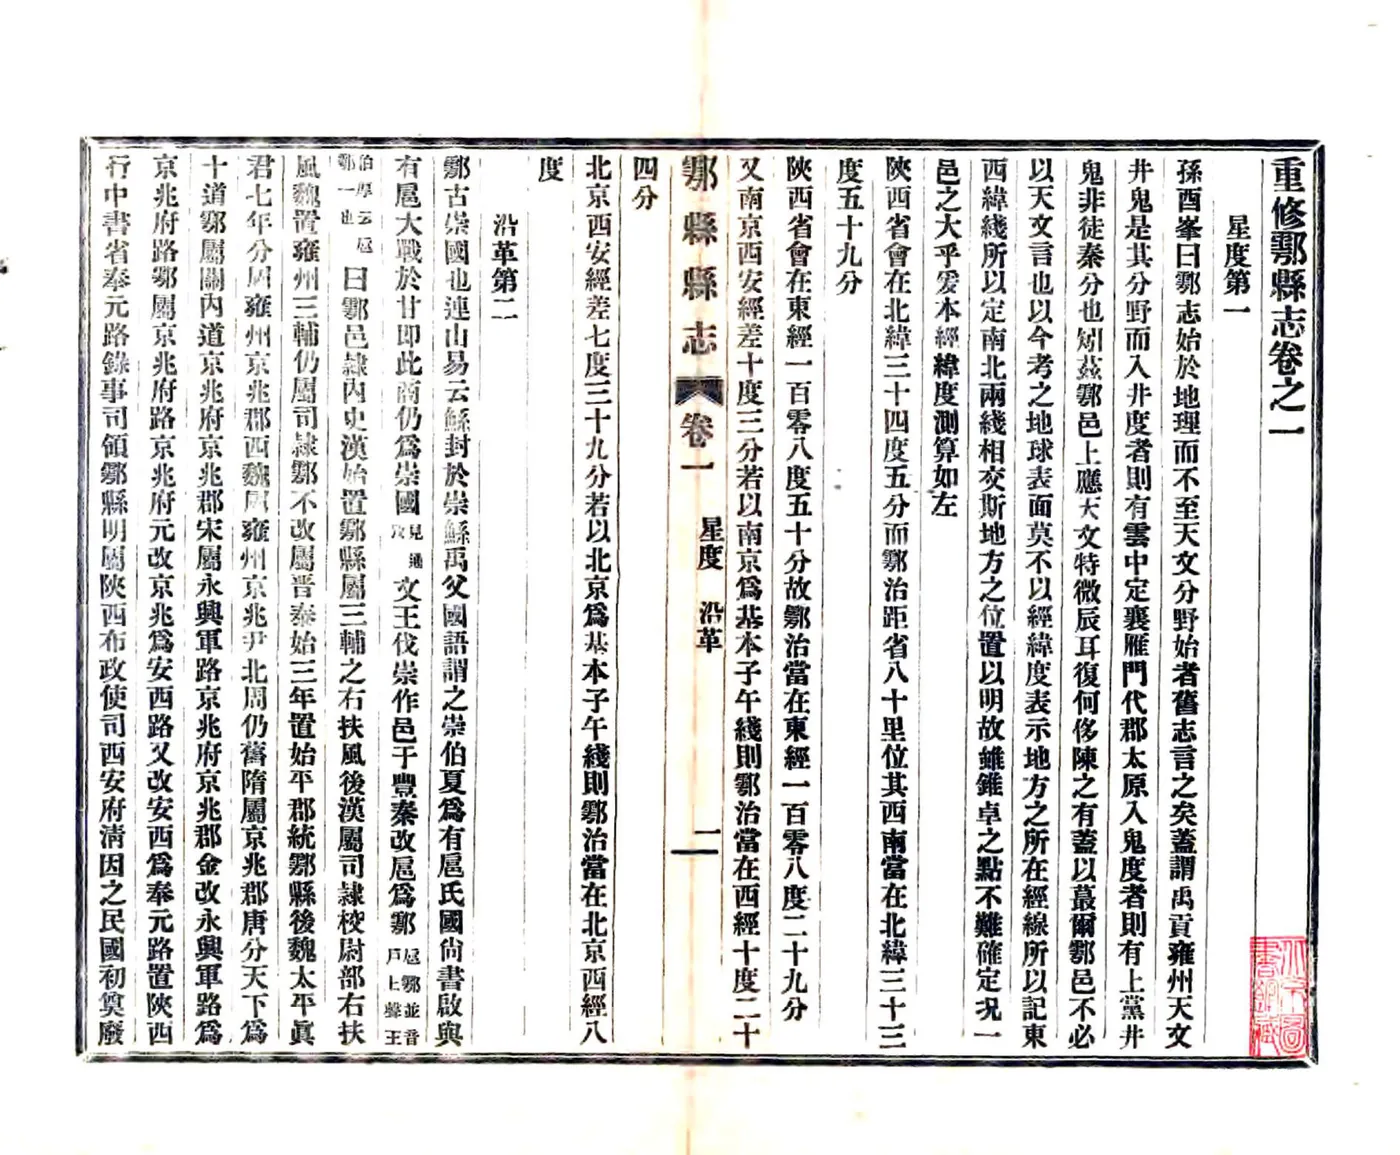 重修鄠縣志卷之一
星度第一
孫酉峯曰鄠志始於地理而不至天文分野始者舊志言之矣蓋謂禹貢雍州天文
井鬼是其分野而入井度者則有雲中定襄雁門代郡太原入鬼度者則有上黨井
鬼非徒秦分也矧茲鄠邑上應天文特微辰耳復何侈陳之有蓋以蕞爾鄠邑不必
以天文言也以今考之地球表面莫不以經緯度表示地方之所在經線所以記東
西緯綫所以定南北兩綫相交斯地方之位置以明故雖錐卓之點不難確定況一
邑之大乎爰本經緯度測算如左
陝西省會在北緯三十四度五分而鄠治距省八十里位其西南當在北緯三十三
度五十九分
陝西省會在東經一百零八度五十分故鄠治當在東經一百零八度二十九分
又南京西安經差十度三分若以南京爲基本子午綫則鄠治當在西經十度二十
四分
北京西安經差七度三十九分若以北京爲基本子午綫則鄠治當在北京西經八
度
沿革第二
鄠古崇國也連山易云鯀封於崇鯀禹父國語謂之崇伯夏爲有扈氏國尙書啟與
有扈大戰於甘即此商仍爲崇國見通攷文王伐崇作邑于豐秦改扈爲鄠扈鄠並音戶上聲王
伯厚云扈鄠一也曰鄠邑隷內史漢始置鄠縣屬三輔之右扶風後漢屬司隷校尉部右扶
風魏置雍州三輔仍屬司隷鄠不改屬晋泰始三年置始平郡統鄠縣後魏太平眞
君七年分屬雍州京兆郡西魏屬雍州京兆尹北周仍舊隋屬京兆郡唐分天下爲
十道鄠屬關內道京兆府京兆郡宋屬永興軍路京兆府京兆郡金改永興軍路爲
京兆府路鄠屬京兆府路京兆府元改京兆爲安西路又改安西爲奉元路置陝西
行中書省奉元路錄事司領鄠縣明屬陝西布政使司西安府淸因之民國初奠廢
鄠縣志
卷一
星度 沿革
一